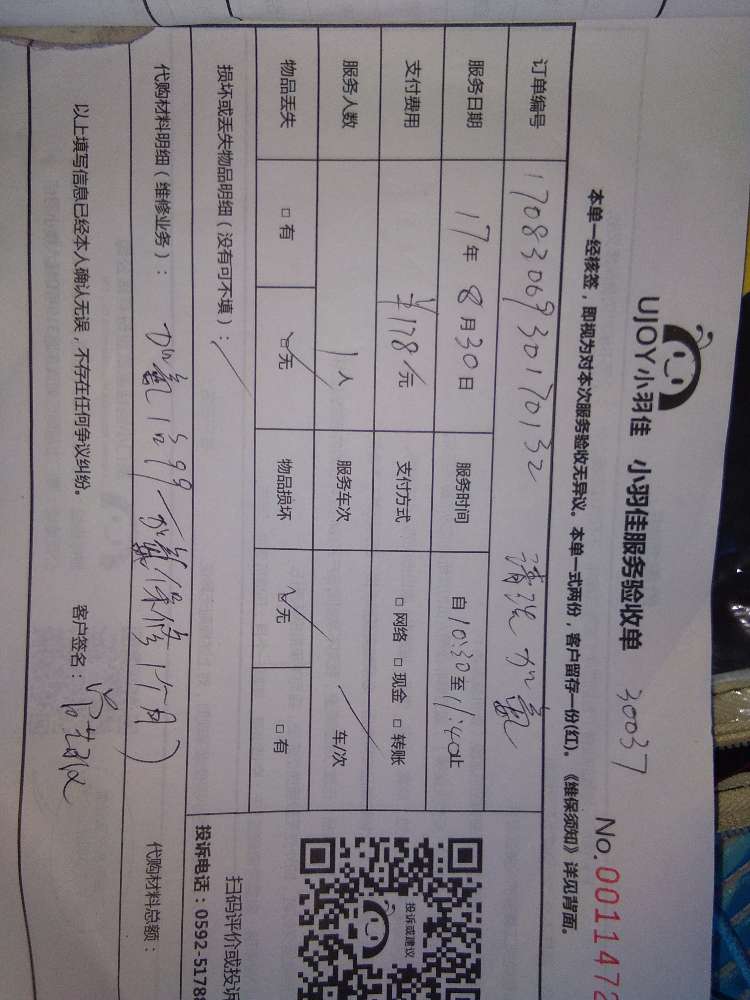 UJOY小羽佳 小羽佳服务验收单 30037
No.0011472
本单一经核签，即视为对本次服务验收无异议。本单一式两份，客户留存一份(红)。《维保须知》详见背面。
订单编号 1708306930170132 清洗加氟
服务日期 17年8月30日 服务时间 自10:30至11:40止
支付费用 ¥178元 支付方式 □网络 □现金 □转账
服务人数 1人 服务车次 车/次
物品丢失 □有 ☑无 物品损坏 ☑无 □有
损坏或丢失物品明细（没有可不填）：
投诉或建议
扫码评价或投诉
投诉电话：0592-5178
代购材料明细（维修业务）： 加氟 保修1个月)
代购材料总额：
以上填写信息已经本人确认无误，不存在任何争议纠纷。 客户签名：